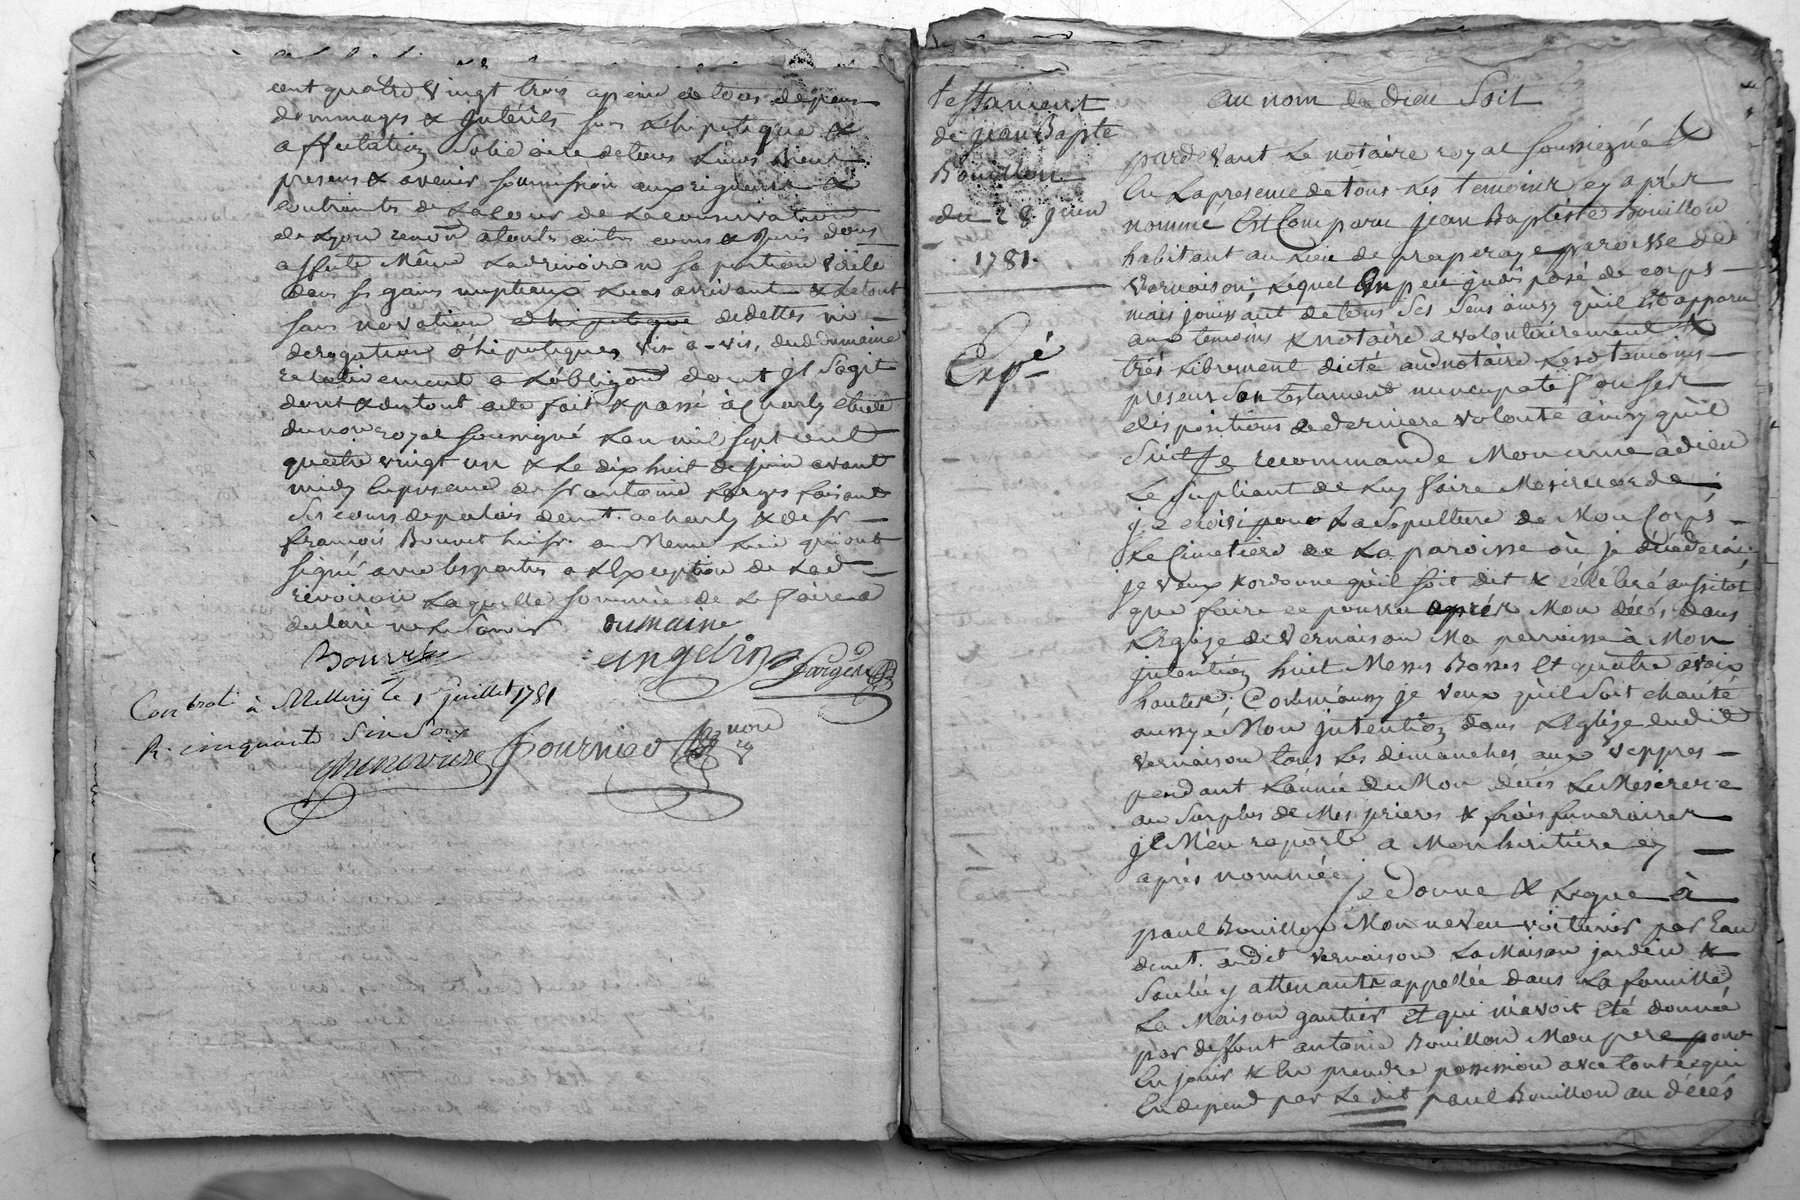 cent quatre vingt trois a peine de tous depens
dommages & jnterêts sous l'hipoteque &
affectation solidaire de tous leurs biens
presens & avenir soumission aux rigueurs &
contraintes de la cour de la conservation
de Lyon renon a toute autres cours & juris dont
affecte même la rivoiron sa portion virile
dans ses gains nuptiaux le cas arrivant & le tout
sans novation d'hipoteque de dettes ni
derogation d'hipoteques vis-a-vis, dud dumaine
relativement a l'obligaon dont jl s'agit
dont & du tout acte fait & passé à Charly etude
du nore royal soussigné l'an mil sept cent
quatre vingt un & le dix huit de juin avant
midy en presence de sr antoine farges faisant
ses cours de palais demt. a charly & de sr
françois Bouvet huisr. au même lieu qui ont
signé avec les parties a l'exception de lad
rivoiron laquelle sommée de le faire a
declaré ne le savoir
dumaine
Bouvet
angelin farges
Controlé à Millery le 1er Juillet 1781
R. cinquante six sols
Fournier nore
rg
testament
de jean Bapte
Bouillon
du 28 juin
1781.
Expé
au nom de dieu soit
pardevant le notaire royal soussigné &
en la presence de tous les temoins cy après
nommé est comparu jean Baptiste Bouillon
habitant au lieu de preperaye paroisse de
vernaison, lequel un peu jndisposé de corps
mais jouissant de tous ses sens ainsy qu'il est apparu
aux temoins & notaire a volontairement &
très librement dicté aud notaire lesd temoins
presens son testament nuncupatif ou ses
dispositions de derniere volonté ainsy qu'il
suit je recommande mon ame à dieu
le supliant de luy faire misericorde
je choisi pour la sepulture de mon corps
le cimetiere de la paroisse où je décederai
je veux & ordonne qu'il soit dit & célébré aussitot
que faire ce pourra après mon décés dans
l'eglize de vernaison ma parroisse à mon
jntention huit messes basses et quatre a voix
hautes. Comme aussy je veux qu'il soit chanté
aussy à mon jntention dans l'eglize dudit
vernaison tous les dimanches aux veppres
pendant l'année de mon décés le miserere
au surplus de mes prieres & frais funeraires
je m'en raporte a mon heritière cy
après nommée je donne & legue à
paul Bouillon mon neveu voiturier par eau
demt. audit vernaison la maison jardin &
saulée y attenante appellée dans la famille
la maison gautier et qui m'avoit été donnée
par deffunt antoine Bouillon mon pere pour
en jouir & en prendre possession avec tout ce qui
en depend par le dit paul Bouillon au décés